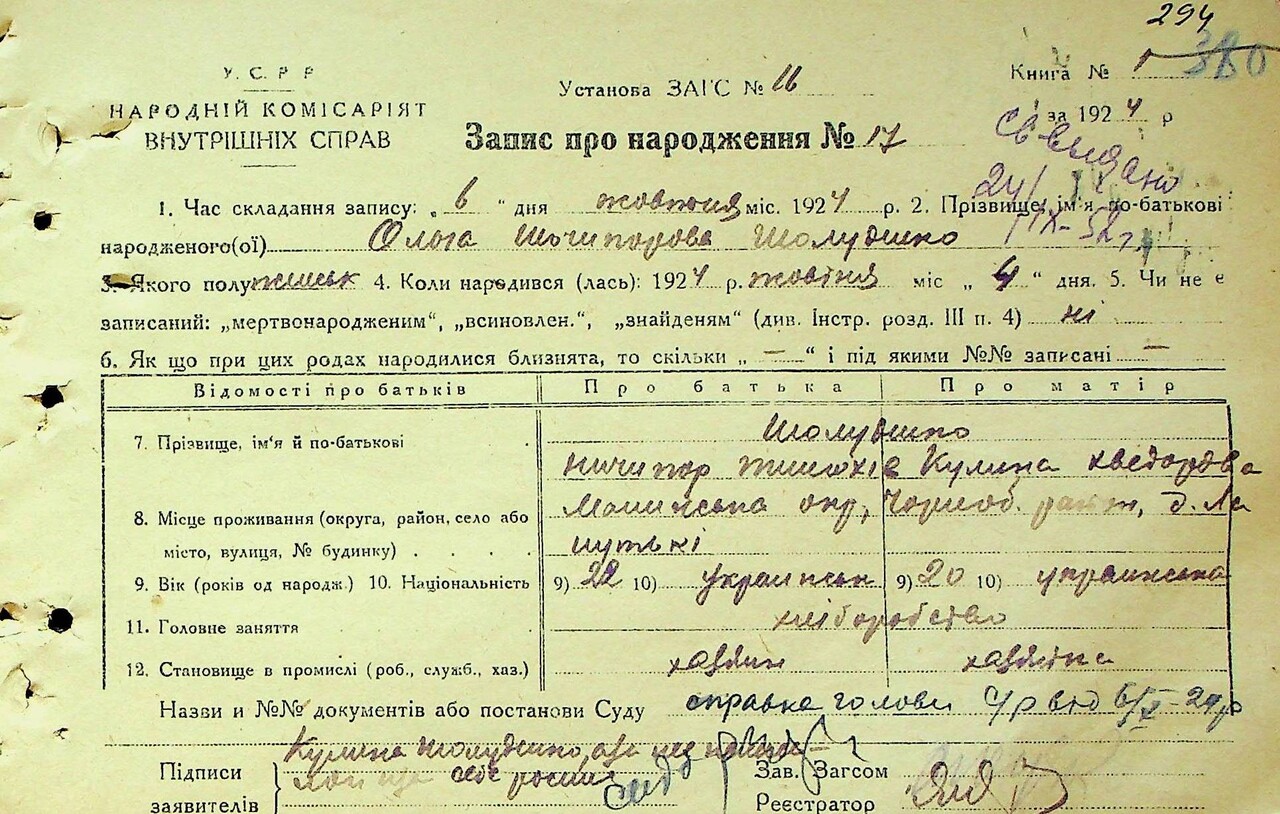 294
380
У. С. Р. Р
НАРОДНІЙ КОМІСАРІЯТ
ВНУТРІШНІХ СПРАВ
Установа ЗАГС № 16
Книга № 1
за 1924 р
Запис про народження № 17
св выдано
24/IX-52 г.
1. Час складання запису: „ 6 " дня жовтня міс. 1924 р. 2. Прізвище, ім'я по-батькові
народженого(ої) Ольга Ничипорова Шолудько
3. Якого полу женськ 4. Коли народився (лась): 1924 р. жовтня міс „ 4 " дня. 5. Чи не є
записаний: „мертвонародженим“, „всиновлен.“, „знайденям“ (див. Інстр. розд. III п. 4) ні
6. Як що при цих родах народилися близнята, то скільки „ — “ і під якими №№ записані —
Відомості про батьків Про батька Про матір
7. Прізвище, ім'я й по-батькові
Шолудько
Ничипор Кулина хведорова
8. Місце проживання (округа, район, село або
місто, вулиця, № будинку)
окр, Чорноб. район, д.
9. Вік (років од народж.) 10. Національність 9) 22 10) українськ 9) 20 10) українська
11. Головне заняття хліборобство
12. Становище в промислі (роб., служб., хаз.) хазяин хазяіка
Назви и №№ документів або постанови Суду справка голови С/р від 6/X-24р
Підписи
заявителів
Кулина Шолудько, а
Зав. Загсом
Реєстратор